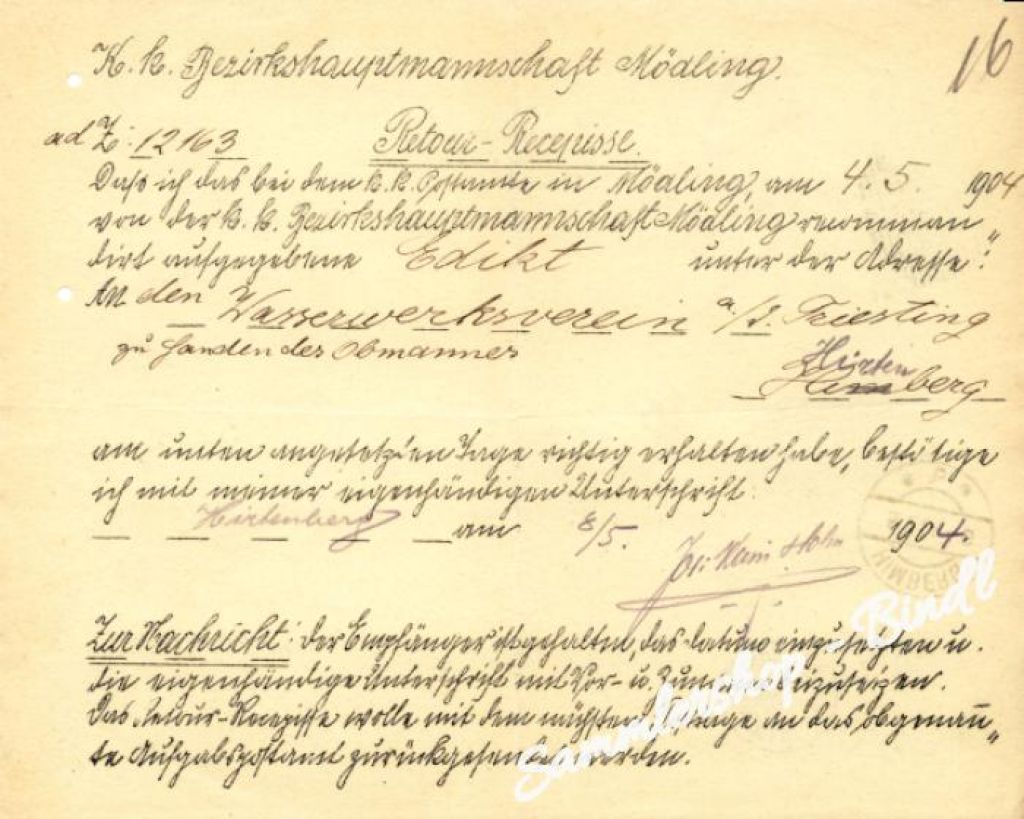 16
K. k. Bezirkshauptmannschaft Mödling.
ad Z: 12163 Retour-Recepisse.
Daß ich das bei dem k. k. Postamte in Mödling, am 4. 5. 1904
von der k. k. Bezirkshauptmannschaft Mödling recomman„
dirt aufgegebene Edikt unter der Adresse:
An den Wasserwerksverein a/d. Triesting
zu Handen des Obmannes
Hirten
berg
am unten angesetzten Tage richtig erhalten habe, bestätige
ich mit meiner eigenhändigen Unterschrift.
Hirtenberg am 8/5. 1904.
HIMBERG
Zur Nachricht: Der Empfänger ist gehalten, das Datum einzusetzen u.
die eigenhändige Unterschrift mit Vor- u. Zunamen beizusetzen.
Das Retour-Recepisse wolle mit dem nächsten Posttage an das obgenañ„
te Aufgabspostamt zurückgesendet werden.
Sammlershop - Bindl